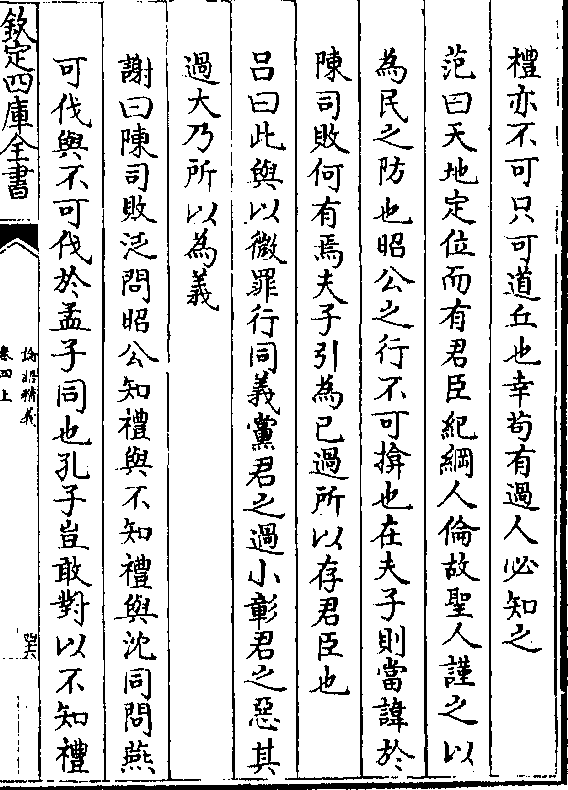 禮亦不可只可道丘也幸苟有過人必知之
范曰天地定位而有君臣紀綱人倫故聖人謹之以
為民之防也昭公之行不可揜也在夫子則當諱於
陳司敗何有焉夫子引為已過所以存君臣也
呂曰此與以微罪行同義黨君之過小彰君之惡其
過大乃所以為義
謝曰陳司敗泛問昭公知禮與不知禮與沈同問燕
可伐與不可伐於孟子同也孔子豈敢對以不知禮
欽定四庫全書
論語精義
卷四上